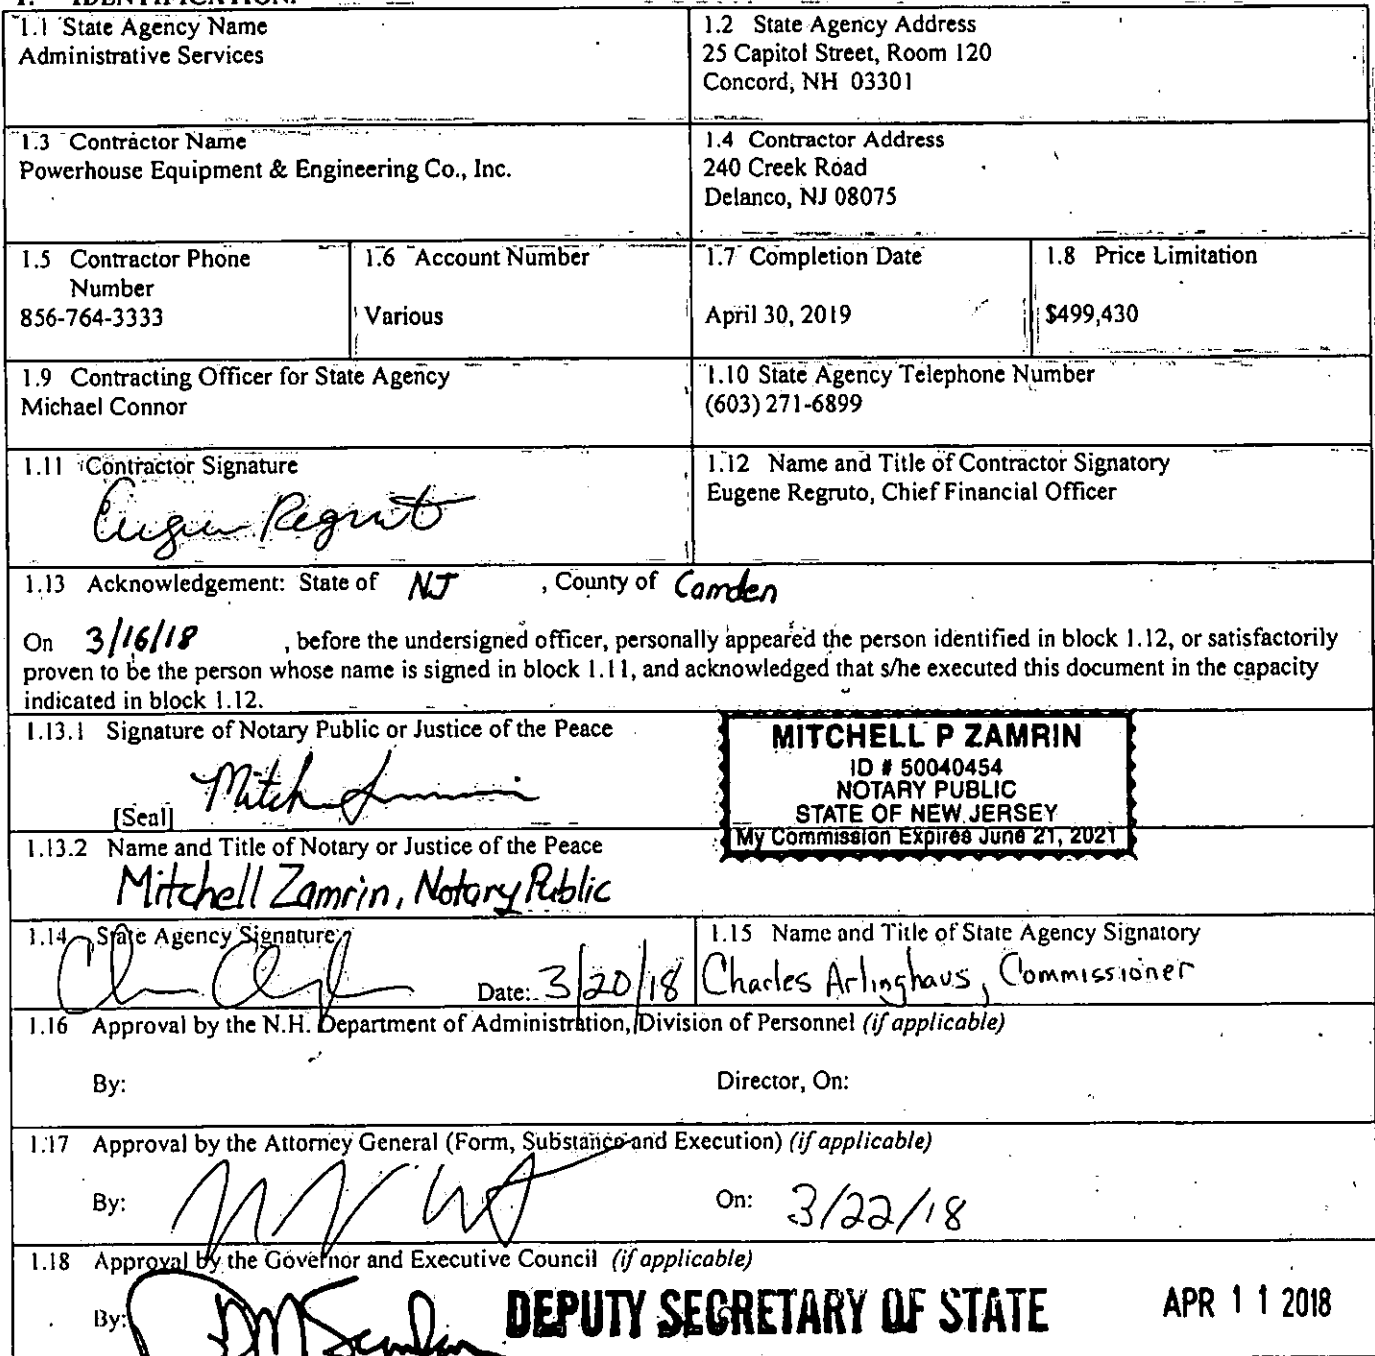 1. IDENTIFICATION.
1.1 State Agency Name
Administrative Services
1.2 State Agency Address
25 Capitol Street, Room 120
Concord, NH 03301
1.3 Contractor Name
Powerhouse Equipment & Engineering Co., Inc.
1.4 Contractor Address
240 Creek Road
Delanco, NJ 08075
1.5 Contractor Phone
Number
856-764-3333
1.6 Account Number
Various
1.7 Completion Date
April 30, 2019
1.8 Price Limitation
$499,430
1.9 Contracting Officer for State Agency
Michael Connor
1.10 State Agency Telephone Number
(603) 271-6899
1.11 Contractor Signature
Eugene Regruto
1.12 Name and Title of Contractor Signatory
Eugene Regruto, Chief Financial Officer
1.13 Acknowledgement: State of NJ , County of Camden
On 3/16/18 , before the undersigned officer, personally appeared the person identified in block 1.12, or satisfactorily
proven to be the person whose name is signed in block 1.11, and acknowledged that s/he executed this document in the capacity
indicated in block 1.12.
1.13.1 Signature of Notary Public or Justice of the Peace
[Seal]
MITCHELL P ZAMRIN
ID # 50040454
NOTARY PUBLIC
STATE OF NEW JERSEY
My Commission Expires June 21, 2021
1.13.2 Name and Title of Notary or Justice of the Peace
Mitchell Zamrin, Notary Public
1.14 State Agency Signature
Date: 3/20/18
1.15 Name and Title of State Agency Signatory
Charles Arlinghaus, Commissioner
1.16 Approval by the N.H. Department of Administration, Division of Personnel (if applicable)
By: Director, On:
1.17 Approval by the Attorney General (Form, Substance and Execution) (if applicable)
By: On: 3/22/18
1.18 Approval by the Governor and Executive Council (if applicable)
By: DEPUTY SECRETARY OF STATE APR 11 2018